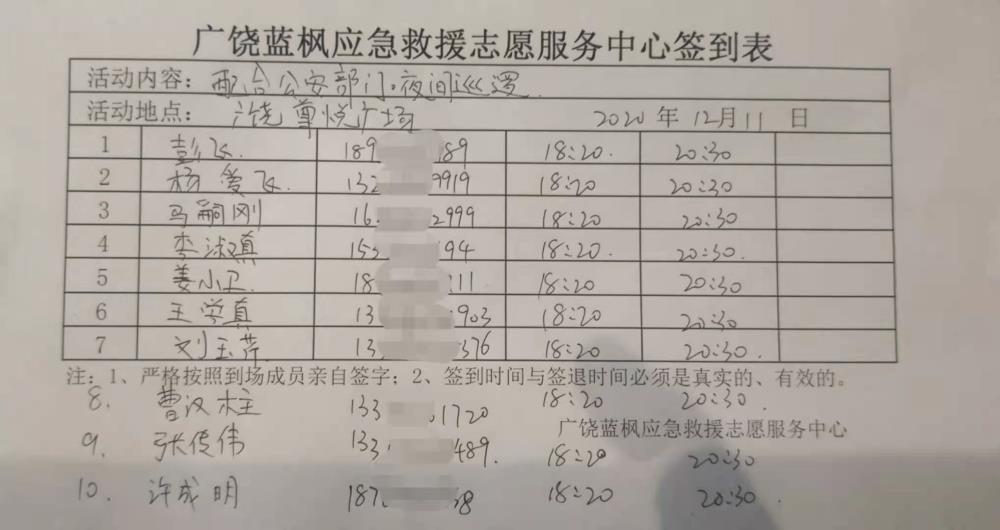 广饶蓝枫应急救援志愿服务中心签到表
活动内容：配合公安部门夜间巡逻
活动地点：广饶尊悦广场 2020年12月11日
1 彭飞 189 189 18:20 20:30
2 杨爱飞 132 9919 18:20 20:30
3 马嗣刚 16 2999 18:20 20:30
4 李淑真 155 194 18:20 20:30
5 姜小卫 18 111 18:20 20:30
6 王学真 13 903 18:20 20:30
7 刘玉萍 13 376 18:20 20:30
注：1、严格按照到场成员亲自签字；2、签到时间与签退时间必须是真实的、有效的。
8. 曹汉柱 133 1720 18:20 20:30
广饶蓝枫应急救援志愿服务中心
9. 张传伟 133 489 18:20 20:30
10. 许成明 187 8 18:20 20:30